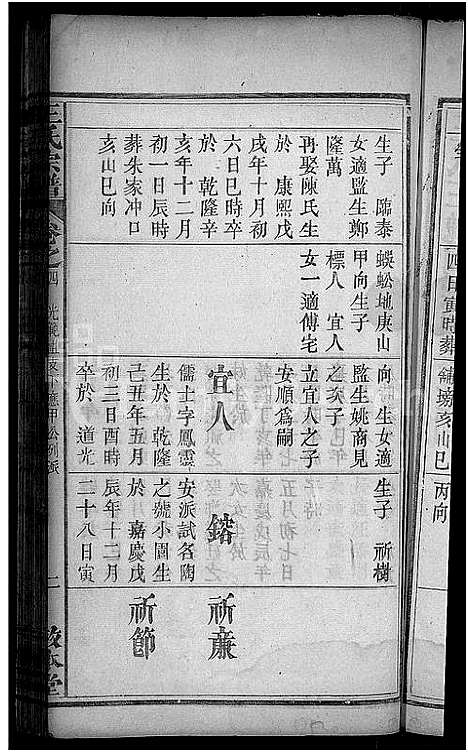 四日寅時葬
亥山巳
丙向
生子 臨泰
女適監生鄭
隆萬
再娶陳氏生
於 康熙戊
戌年十月初
六日巳時卒
於 乾隆辛
亥年十二月
初一日辰時
葬朱家冲口
亥山巳向
蜈蚣地庚山
甲向生子
標人 宜人
女一適傅宅
向 生女適
監生姚商見
之次子
立宜人之子
安順爲嗣
宜人
儒士字鳳靈
生於 乾隆
己丑年五月
初三日酉時
卒於 道光
生子 祈樹
鎔
安派試名陶
之號小園生
於 嘉慶戊
辰年十二月
二十八日寅
祈廉
祈節
王氏宗譜
卷之四
一